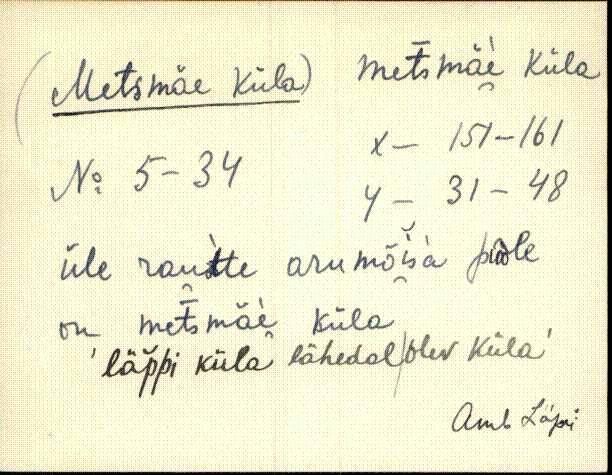 (Metsmäe küla) metsmäe küla
x – 151–161
No 5–34
y – 31–48
üle rautte arumõisa poole
on metsmäe küla
'läppi küla lähedal olev küla'
Amb Läpi